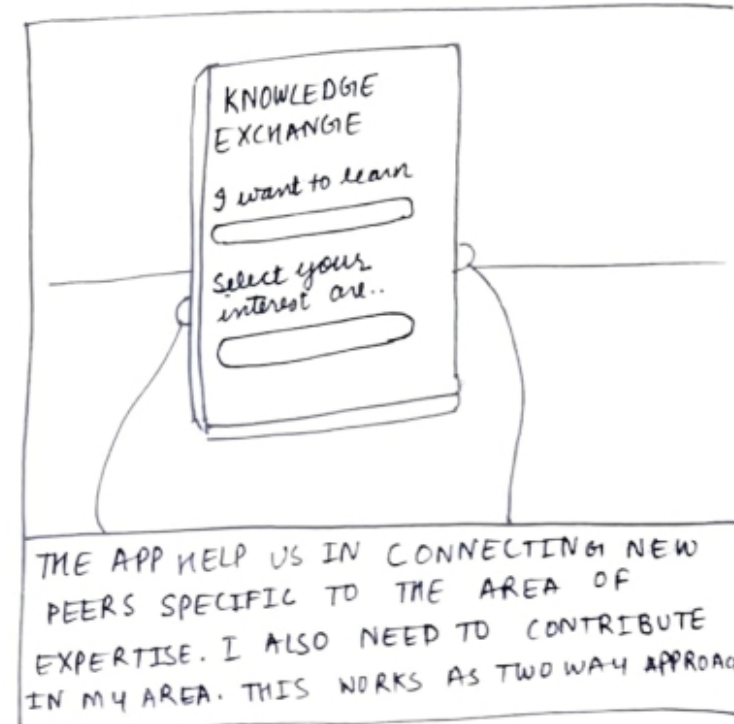 KNOWLEDGE
EXCHANGE
I want to learn
Select your
interest are..
THE APP HELP US IN CONNECTING NEW
PEERS SPECIFIC TO THE AREA OF
EXPERTISE. I ALSO NEED TO CONTRIBUTE
IN MY AREA. THIS WORKS AS TWO WAY APPROAC